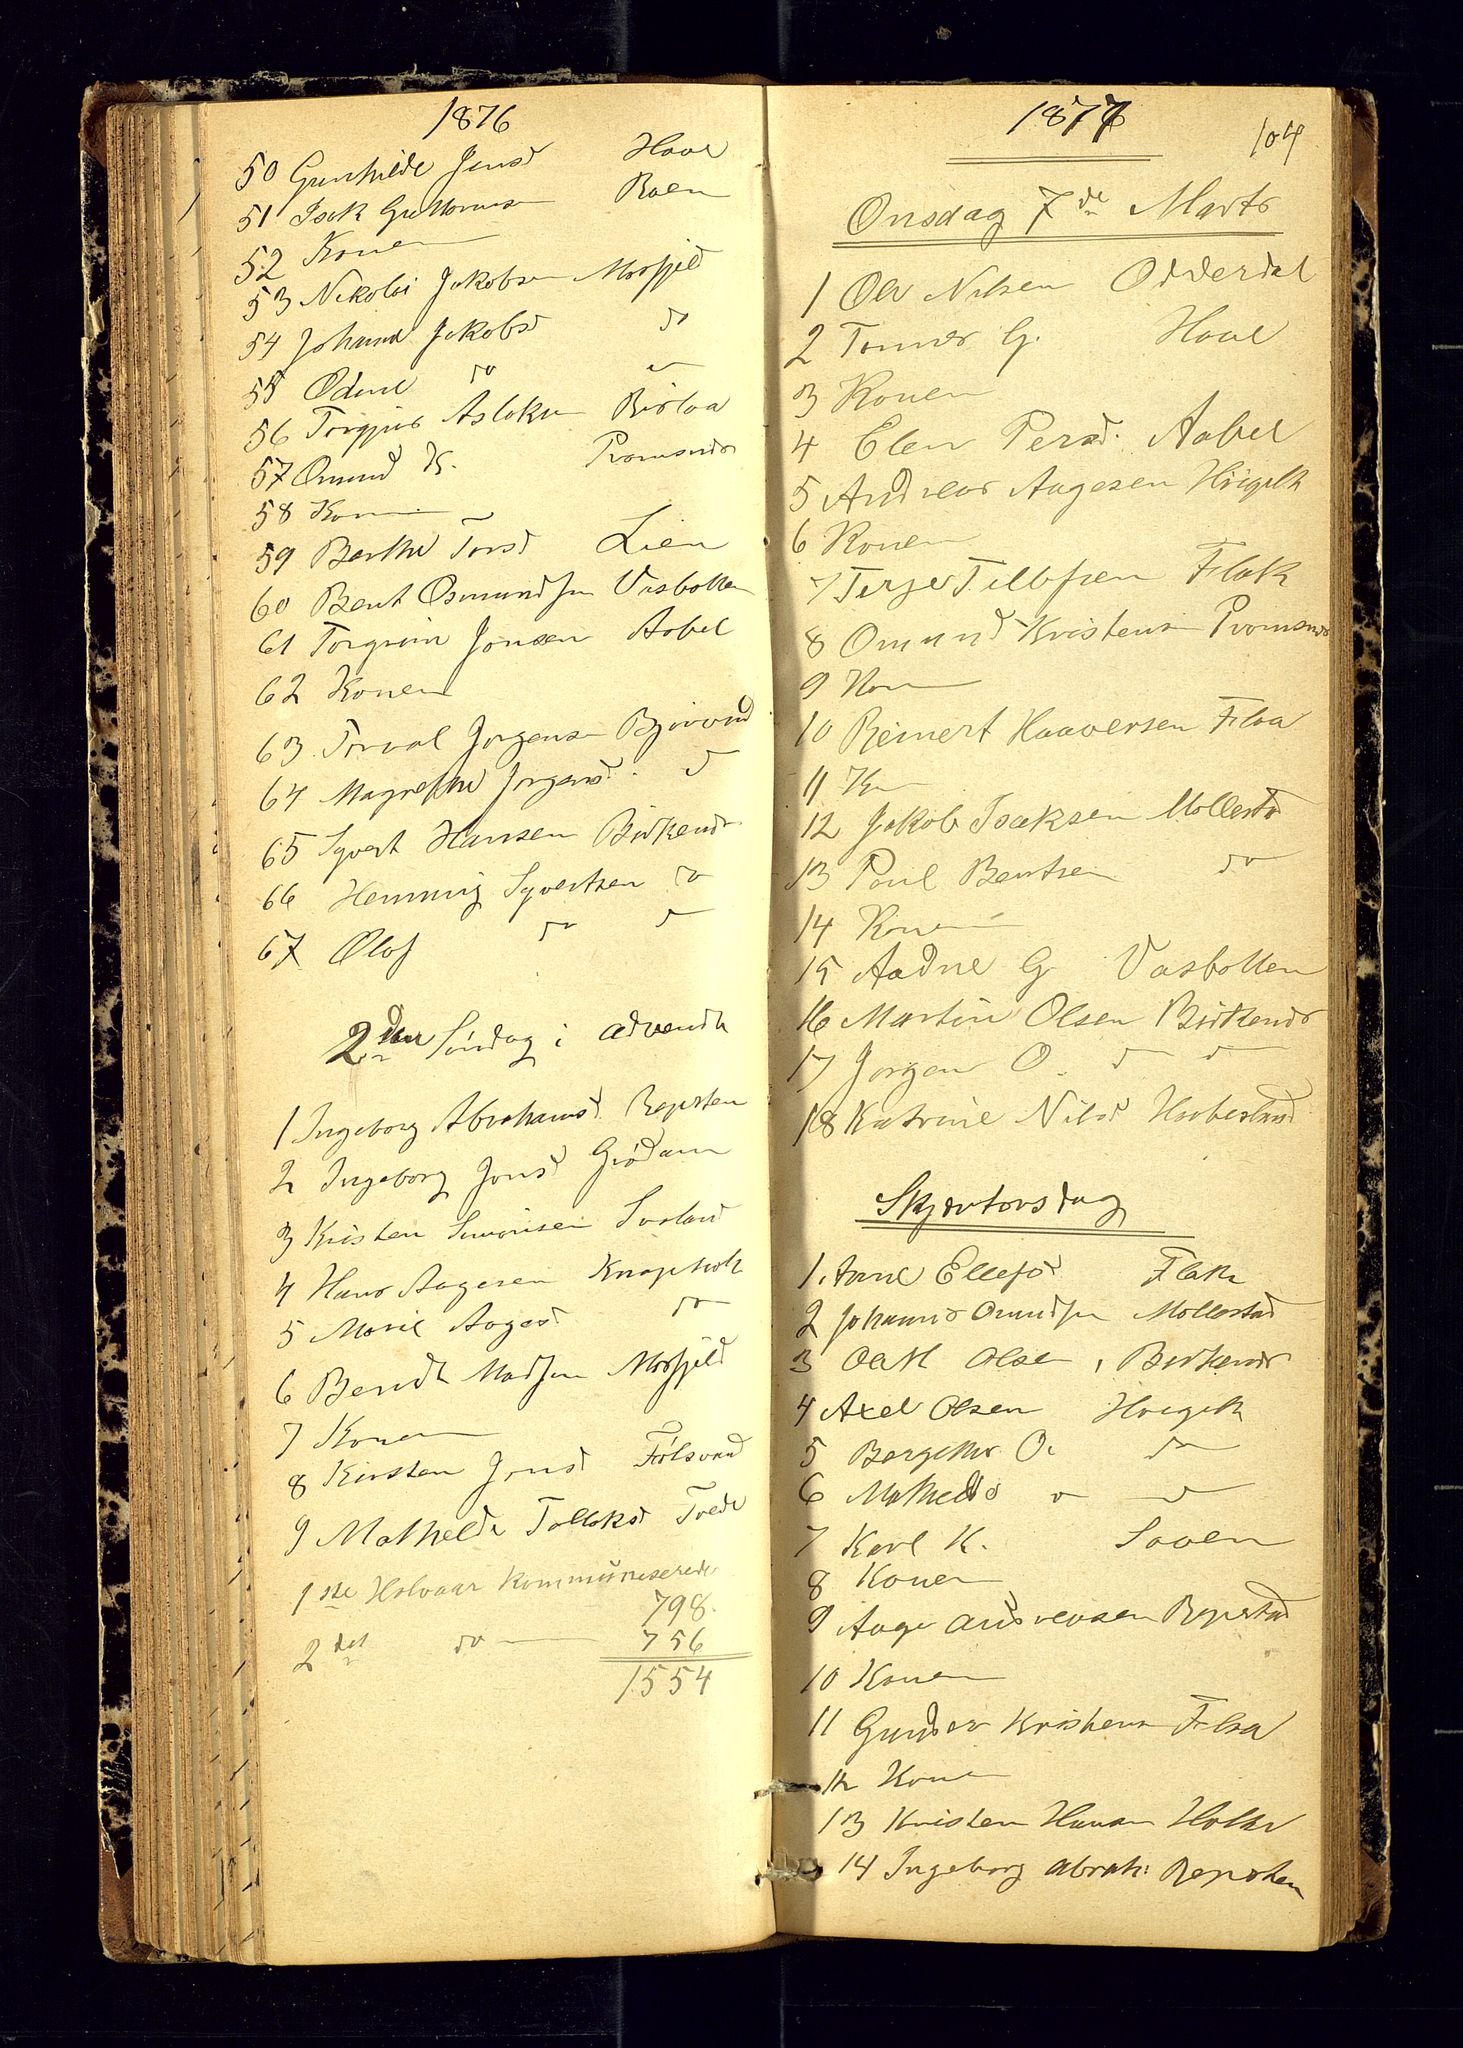 1876
50 Gunhilde Jensd Haae
51 Isak Guttormsen Roen
52 Konen
53 Nikolai Jakobsen Mosfjeld
54 Johanne Jakobsd do
55 Odine do
56 Torgjus Aslaksen Birtaa
57 Omund K. Promsnes
58 Konen
59 Berthe Torsd Lien
60 Bent Osmundsen Vasbotten
61 Torgrim Jonsen Aabel
62 Konen
63 Torval Jorgensen Bjorvand
64 Magrethe Jorgensd. d
65 Syvert Hansen Birkenes
66 Hemmig Syvertsen do
67 Olaf do d
2den Søndag i advendt
1 Ingeborg Abrahamsd. Repsten
2 Ingeborg Jonsd Grødum
3 Kristen Simonsen Svaland
4 Hans Aagesen Knapholt
5 Marie Aagesd do
6 Bendt Madsen Mosfjeld
7 Konen
8 Kirsten Jensd Følsvand
9 Mathilde Tolleksd Tvede
1ste Halvaar Kommuniserede
798.
2det do 756
1554
1877
104
Onsdag 7de Marts
1 Ole Nilsen Odderdal
2 Tonnes G. Haae
3 Konen
4 Elen Persd. Aabel
5 Andreas Aagesen Høigilt
6 Konen
7 Terje Tellefsen Flak
8 Omund Kristensen Promsnes
9 Kon
10 Reinert Haaversen Flaa
11 K
12 Jakob Isaksen Mollestad
13 Poul Bentsen do
14 Konen
15 Aadne G Vasbotten
16 Martin Olsen Birkenes
17 Jorgen O. d d
18 Katrine Nilsd Haabestad
Skjærtorsdag
1. Anne Ellefsd Flak
2 Johannes Omundsen Mollestad
3 Olsen, Birkenes
4 Axel Olsen Høigilt
5 Bergithe O. do
6 Mathilde O d
7 Karl K. Saven
8 Konen
9 Aage Andreasen Repstad
10 Konen
11 Gunder Kristensen Flaa
12 Konen
13 Kristen Hansen Holte
14 Ingeborg Abrah: Repsten